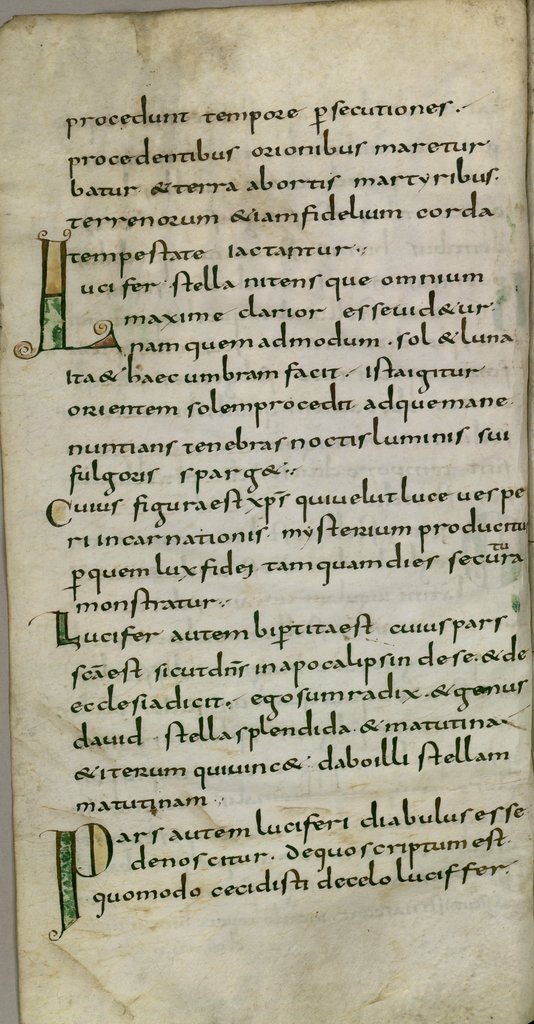 procedunt tempore p̲secutiones.
procedentibus orionibus maretur
batur & terra abortis martyribus.
terrenorum & iam fidelium corda
tempestate iactantur.
Lucifer stella nitens que omnium
maxime clarior esse uid&ur.
nam quem ad modum. sol & luna
ita & haec umbram facit. Ista igitur
orientem solem procedit ad que mane
nuntians tenebras noctis luminis sui
fulgoris sparg&.
Cuius figura est xp̄s qui uelut luce uespe
ri incarnationis. mysterium producitur
p̲ quem lux fidei tam quam dies secutura
monstratur.
Lucifer autem bip̲tita est cuius pars
sc̄a est sicut dn̄s in apocalipsin de se. & de
ecclesia dicit. ego sum radix. & genus
dauid stella splendida. & matutina
& iterum qui uinc& dabo illi stellam
matutinam
Pars autem luciferi diabulus esse
denoscitur. de quo scriptum est.
quomodo cecidisti de celo luciffer.